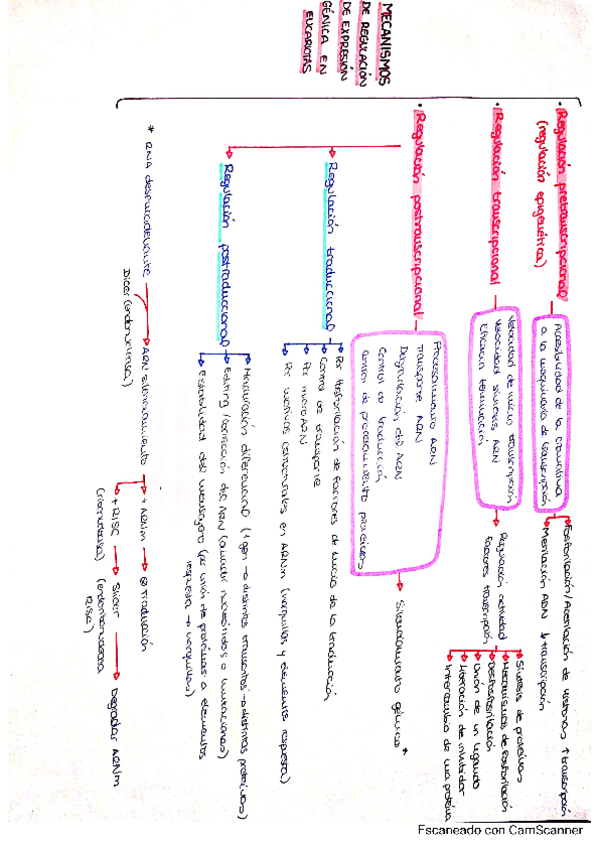 MECANISMOS
DE REGULACIÓN
DE EXPRESIÓN
GÉNICA EN
EUCARIOTAS
• Regulación pretranscripcional
(regulación epigenética)
Accesibilidad de la cromatina
a la maquinaria de transcripción
Fosforilación/Acetilación de histonas ↑ transcripción
Metilación ADN ↓ transcripción
• Regulación transcripcional
Velocidad de inicio transcripción
Velocidad síntesis ARN
Eficacia terminación
Regulación actividad
factores transcripción
Síntesis de proteínas
Mecanismos de fosforilación
Desfosforilación
Unión de un ligando
Liberación de inhibidor
Intercambio de una proteína
• Regulación postranscripcional
Procesamiento ARN
Transporte ARN
Degradación del ARN
Control de traducción
Control de procesamiento proteínas
Silenciamiento génico *
Regulación traduccional
Por fosforilación de factores de inicio de la traducción
Control de transporte
Por microARN
Por motivos estructurales en ARNm (horquillas y elementos respuesta)
Regulación postraduccional
Maduración diferencial (1 gen → distintos transcritos → distintas proteínas)
Editing / corrección del ARN (añadir nucleótidos o mutaciones)
Estabilidad del mensajero (por unión de proteínas a elementos
respuesta → horquillas)
* RNA desencadenante → ARN silenciamiento
Dicer (endonucleasa)
+ ARNm → Ø Traducción
+ RISC → Slicer → Degradar ARNm
(ribonucleasa)
(endorribonucleasa
RISC)
Escaneado con CamScanner